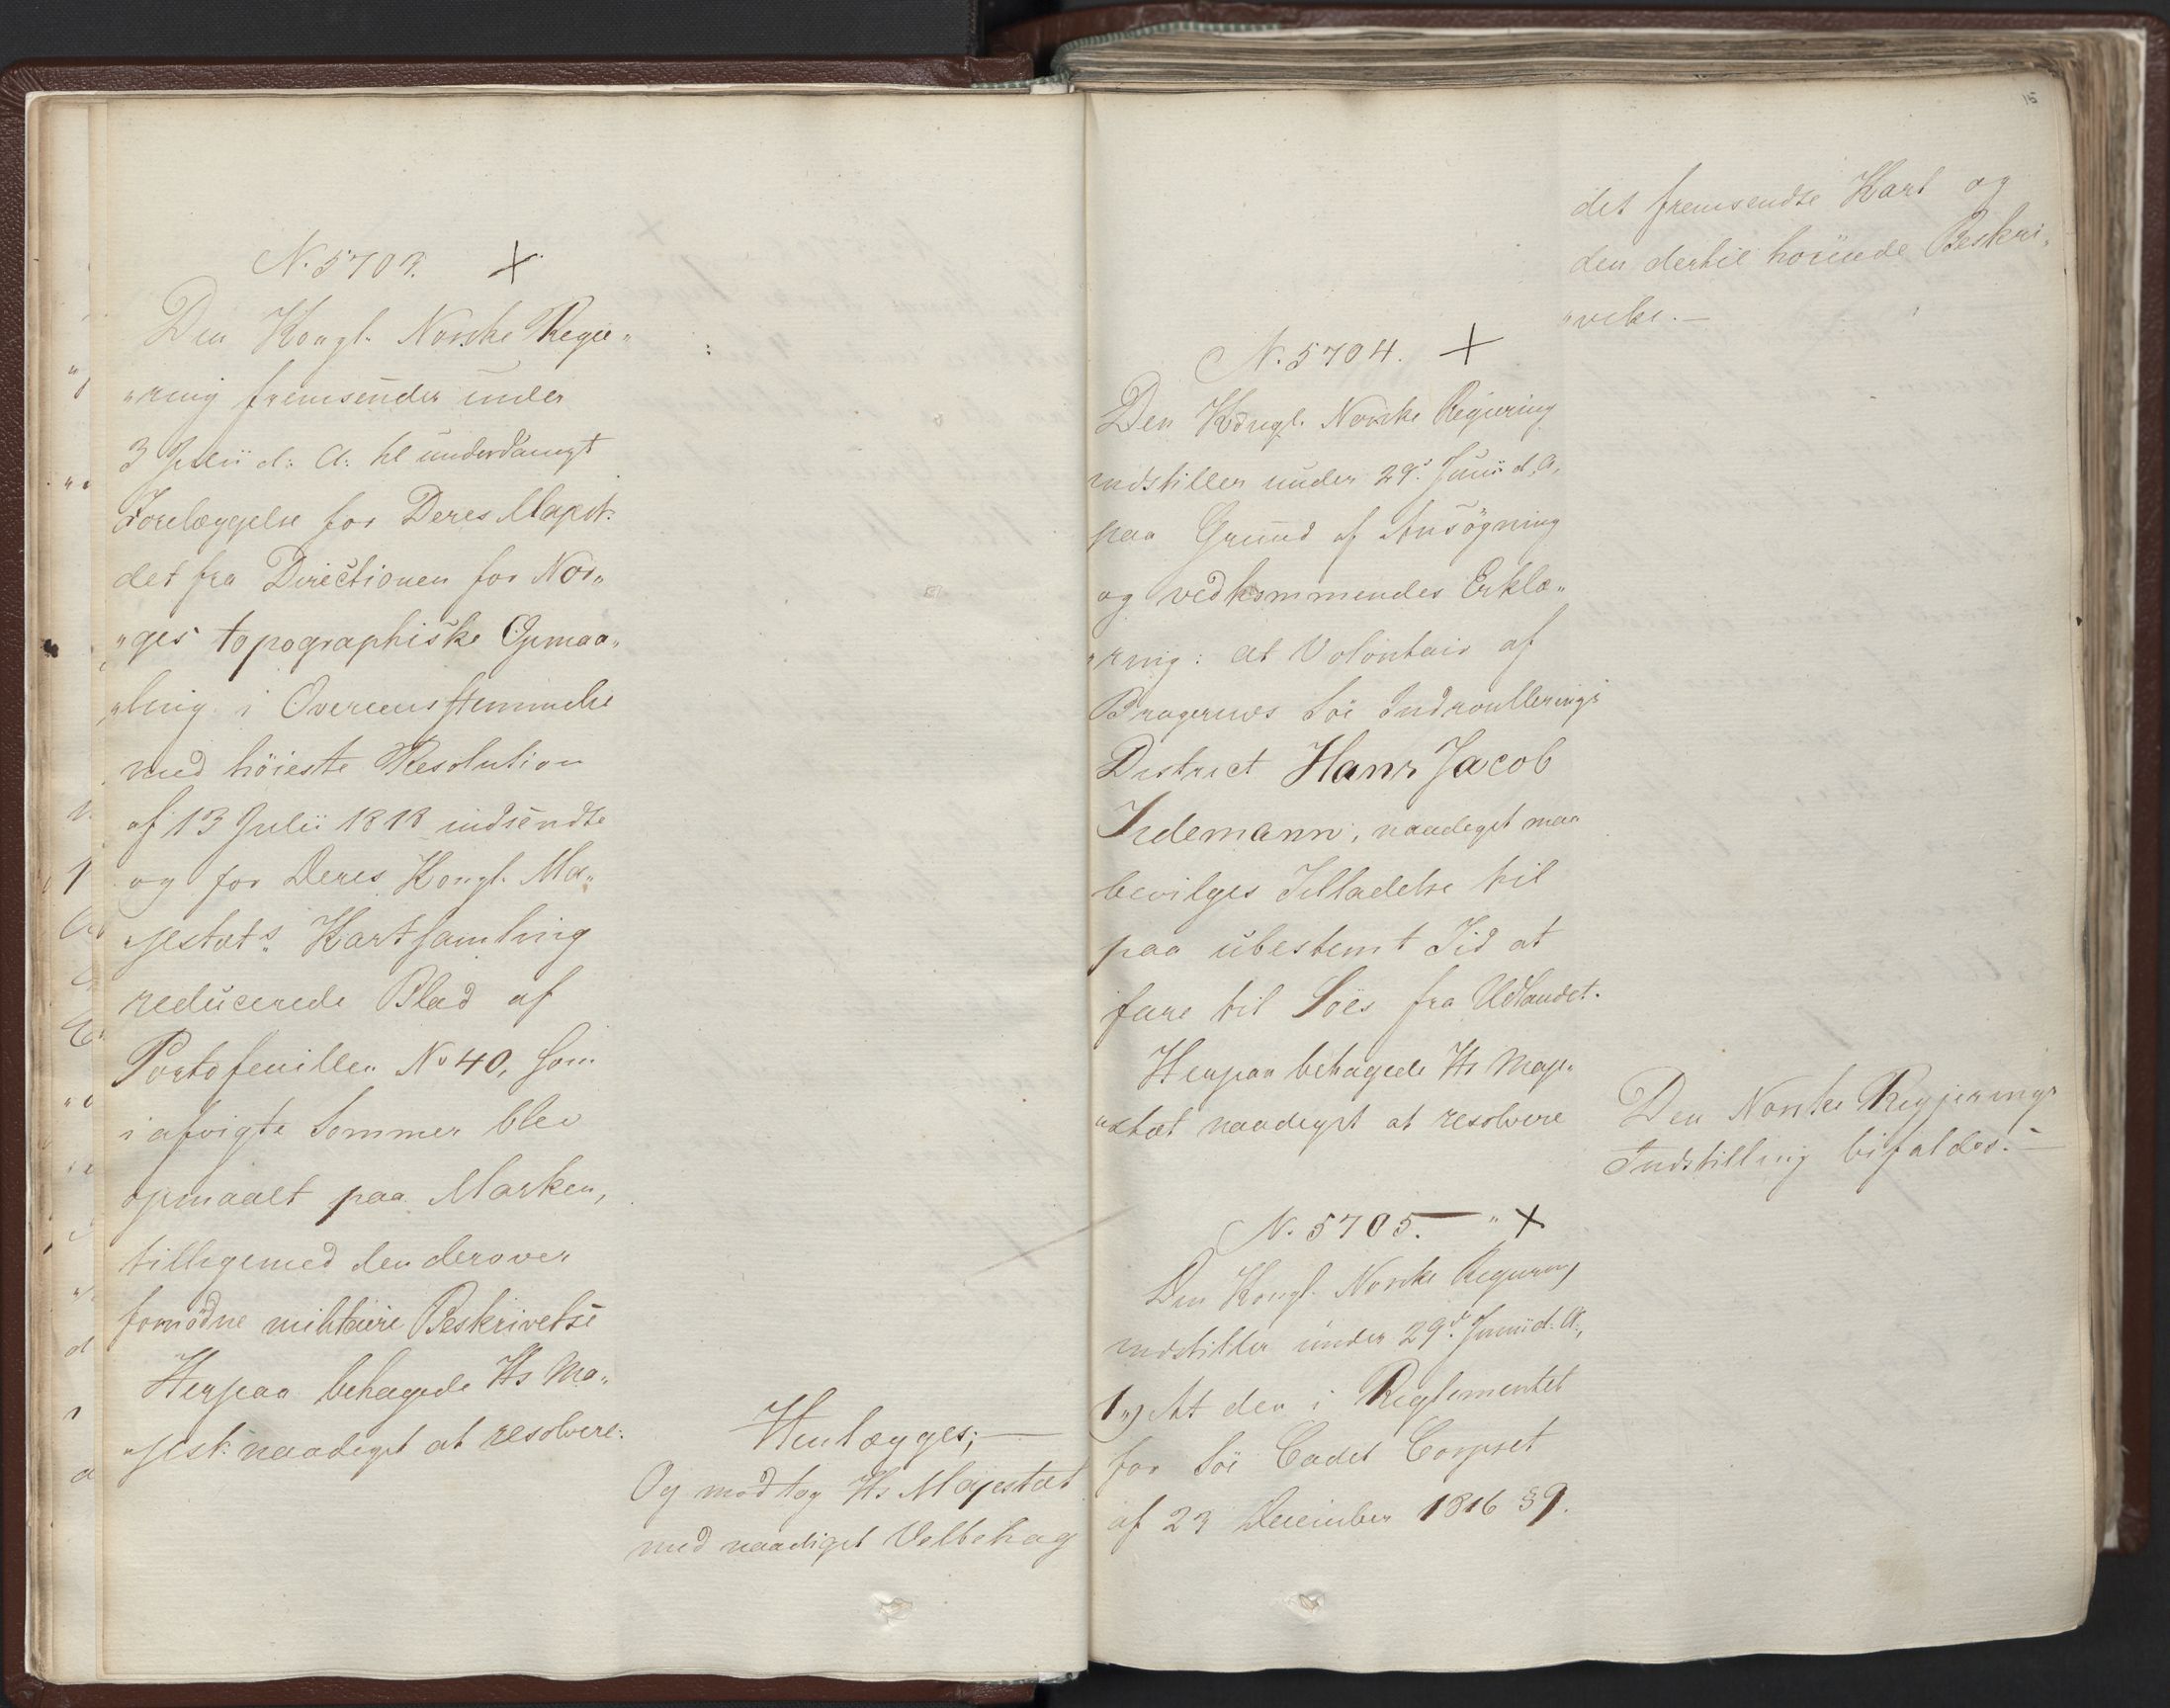 N. 5703. ×
Den Kongl. Norske Regie„
„ring fremsender under
3 Julii d: A: til underdanigt
Forelæggelse for Deres Majest:
det fra Directionen for Nor„
„ges topographiske Opmaa„
„ling i Overeensstemmelse
med höieste Resolution
af 13 Julii 1818 indsendte
og for Deres Kongl. Ma„
„jestæts Kartsamling
reducerede Blad af
Portofeuillen No 40, som
i afvigte Sommer blev
opmaalt paa Marken,
tilligemed den derover
fornödne militaire Beskrivelse
Herpaa behagede Hs Ma„
„jest: naadigst at resolvere:
Henlægges;—
Og modtog Hs Majestæt
med naadigst Velbehag
15
det fremsendte Kart og
den dertil hörende Beskri„
„velse.—
N. 5704. ×
Den Kongl. Norske Regjering
indstiller under 29d Junii d. A.
paa Grund af Ansögning
og vedkommendes Erklæ„
„ring: at Volontair af
Bragernæs Söe Indroullerings
District Hans Jacob
Tidemann, naadigst maa
bevilges Tilladelse til
paa ubestemt Tid at
fare til Söes fra Udlandet.
Herpaa behagede Hs Maje„
„stæt naadigst at resolvere
Den Norske Regjerings
Indstilling bifaldes.—
N. 5705.— „ ×
Den Kongl. Norske Regjering
indstiller under 29d Junii d. A.,
1„) At den i Reglementet
for Söe Cadet Corpset
af 23 December 1816 § 9.